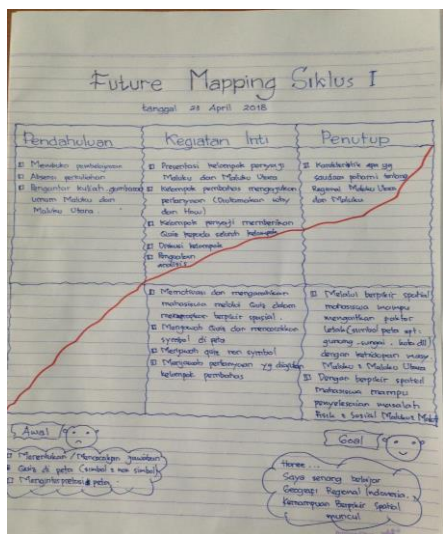 Future Mapping Siklus I
tanggal 23 April 2018
Pendahuluan
Membuka pembelajaran
Absensi perkuliahan
Pengantar kuliah, gambaran
umum Maluku dan
Maluku Utara.
Kegiatan Inti
Presentasi kelompok penyaji
Maluku dan Maluku Utara
Kelompok pembahas mengajukan
pertanyaan (Diutamakan why
dan How)
Kelompok penyaji memberikan
Quis kepada seluruh kelompok
Diskusi kelompok
Penguatan
analisis
Penutup
Karakteristik apa yg
saudara pahami tentang
Regional Maluku Utara
dan Maluku
Memotivasi dan mengarahkan
mahasiswa melalui Quis dalam
berpikir spasial.
Menjawab Quis dan mencocokkan
symbol di peta
Menjawab quis non symbol
Menjawab pertanyaan yg diajukan
kelompok pembahas
Melalui berpikir spatial
mahasiswa mampu
mengaitkan faktor
(simbol peta spt:
gunung, sungai, kota dll)
dengan kehidupan masy
Maluku & Maluku Utara
Dengan berpikir spatial
mahasiswa mampu
penyelesaian masalah
Fisik & Sosial Maluku &
Awal
Menentukan / Mencocokan jawaban
Quis di peta (simbol & non simbol)
peta
Goal
Horee...
Saya senang belajar
Geografi Regional Indonesia.
Kemampuan Berpikir Spatial
muncul